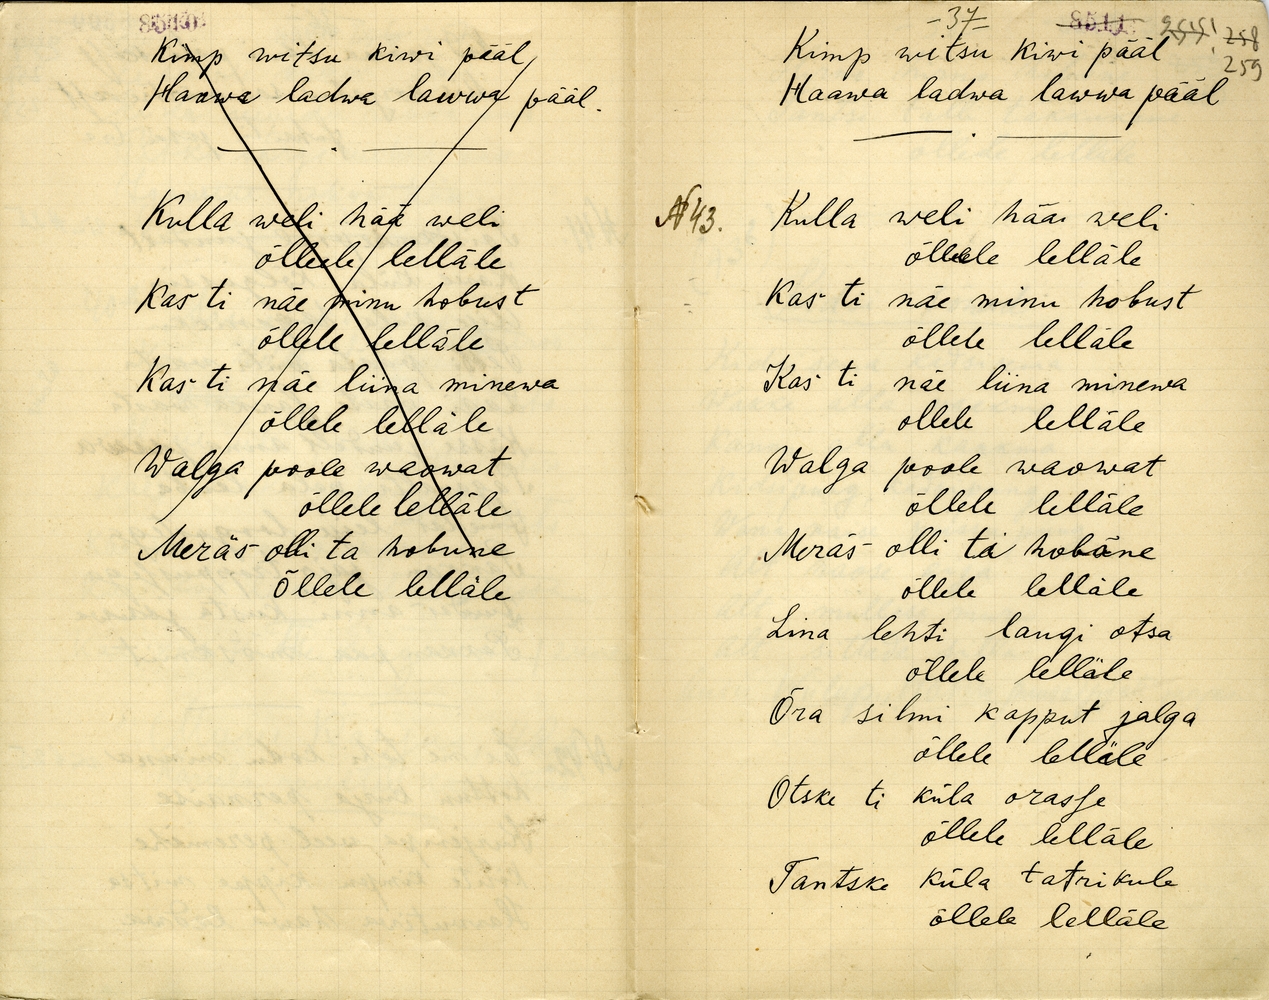 Kimp witsu kiwi pääl
Haawa ladwa lawwa pääl.
Kulla weli hää weli
õllele lelläle
Kas ti näe minu hobust
õllele lelläle
Kas ti näe liina minewa
õllele lelläle
Walga poole waowat
õllele lelläle
Meräs olli ta hobune
Õllele lelläle
-37-
258
259
Kimp witsu kiwi pääl
Haawa ladwa lawwa pääl
N 43.
Kulla weli hää weli
õllele lelläle
Kas ti näe minu hobust
õllele lelläle
Kas ti näe liina minewa
õllele lelläle
Walga poole waowat
õllele lelläle
Meräs olli ta hobäne
õllele lelläle
Lina lehti laugi otsa
õllele lelläle
Õra silmi kapput jalga
õllele lelläle
Otske ti küla orasse
õllele lelläle
Tantske küla tatrikule
õllele lelläle